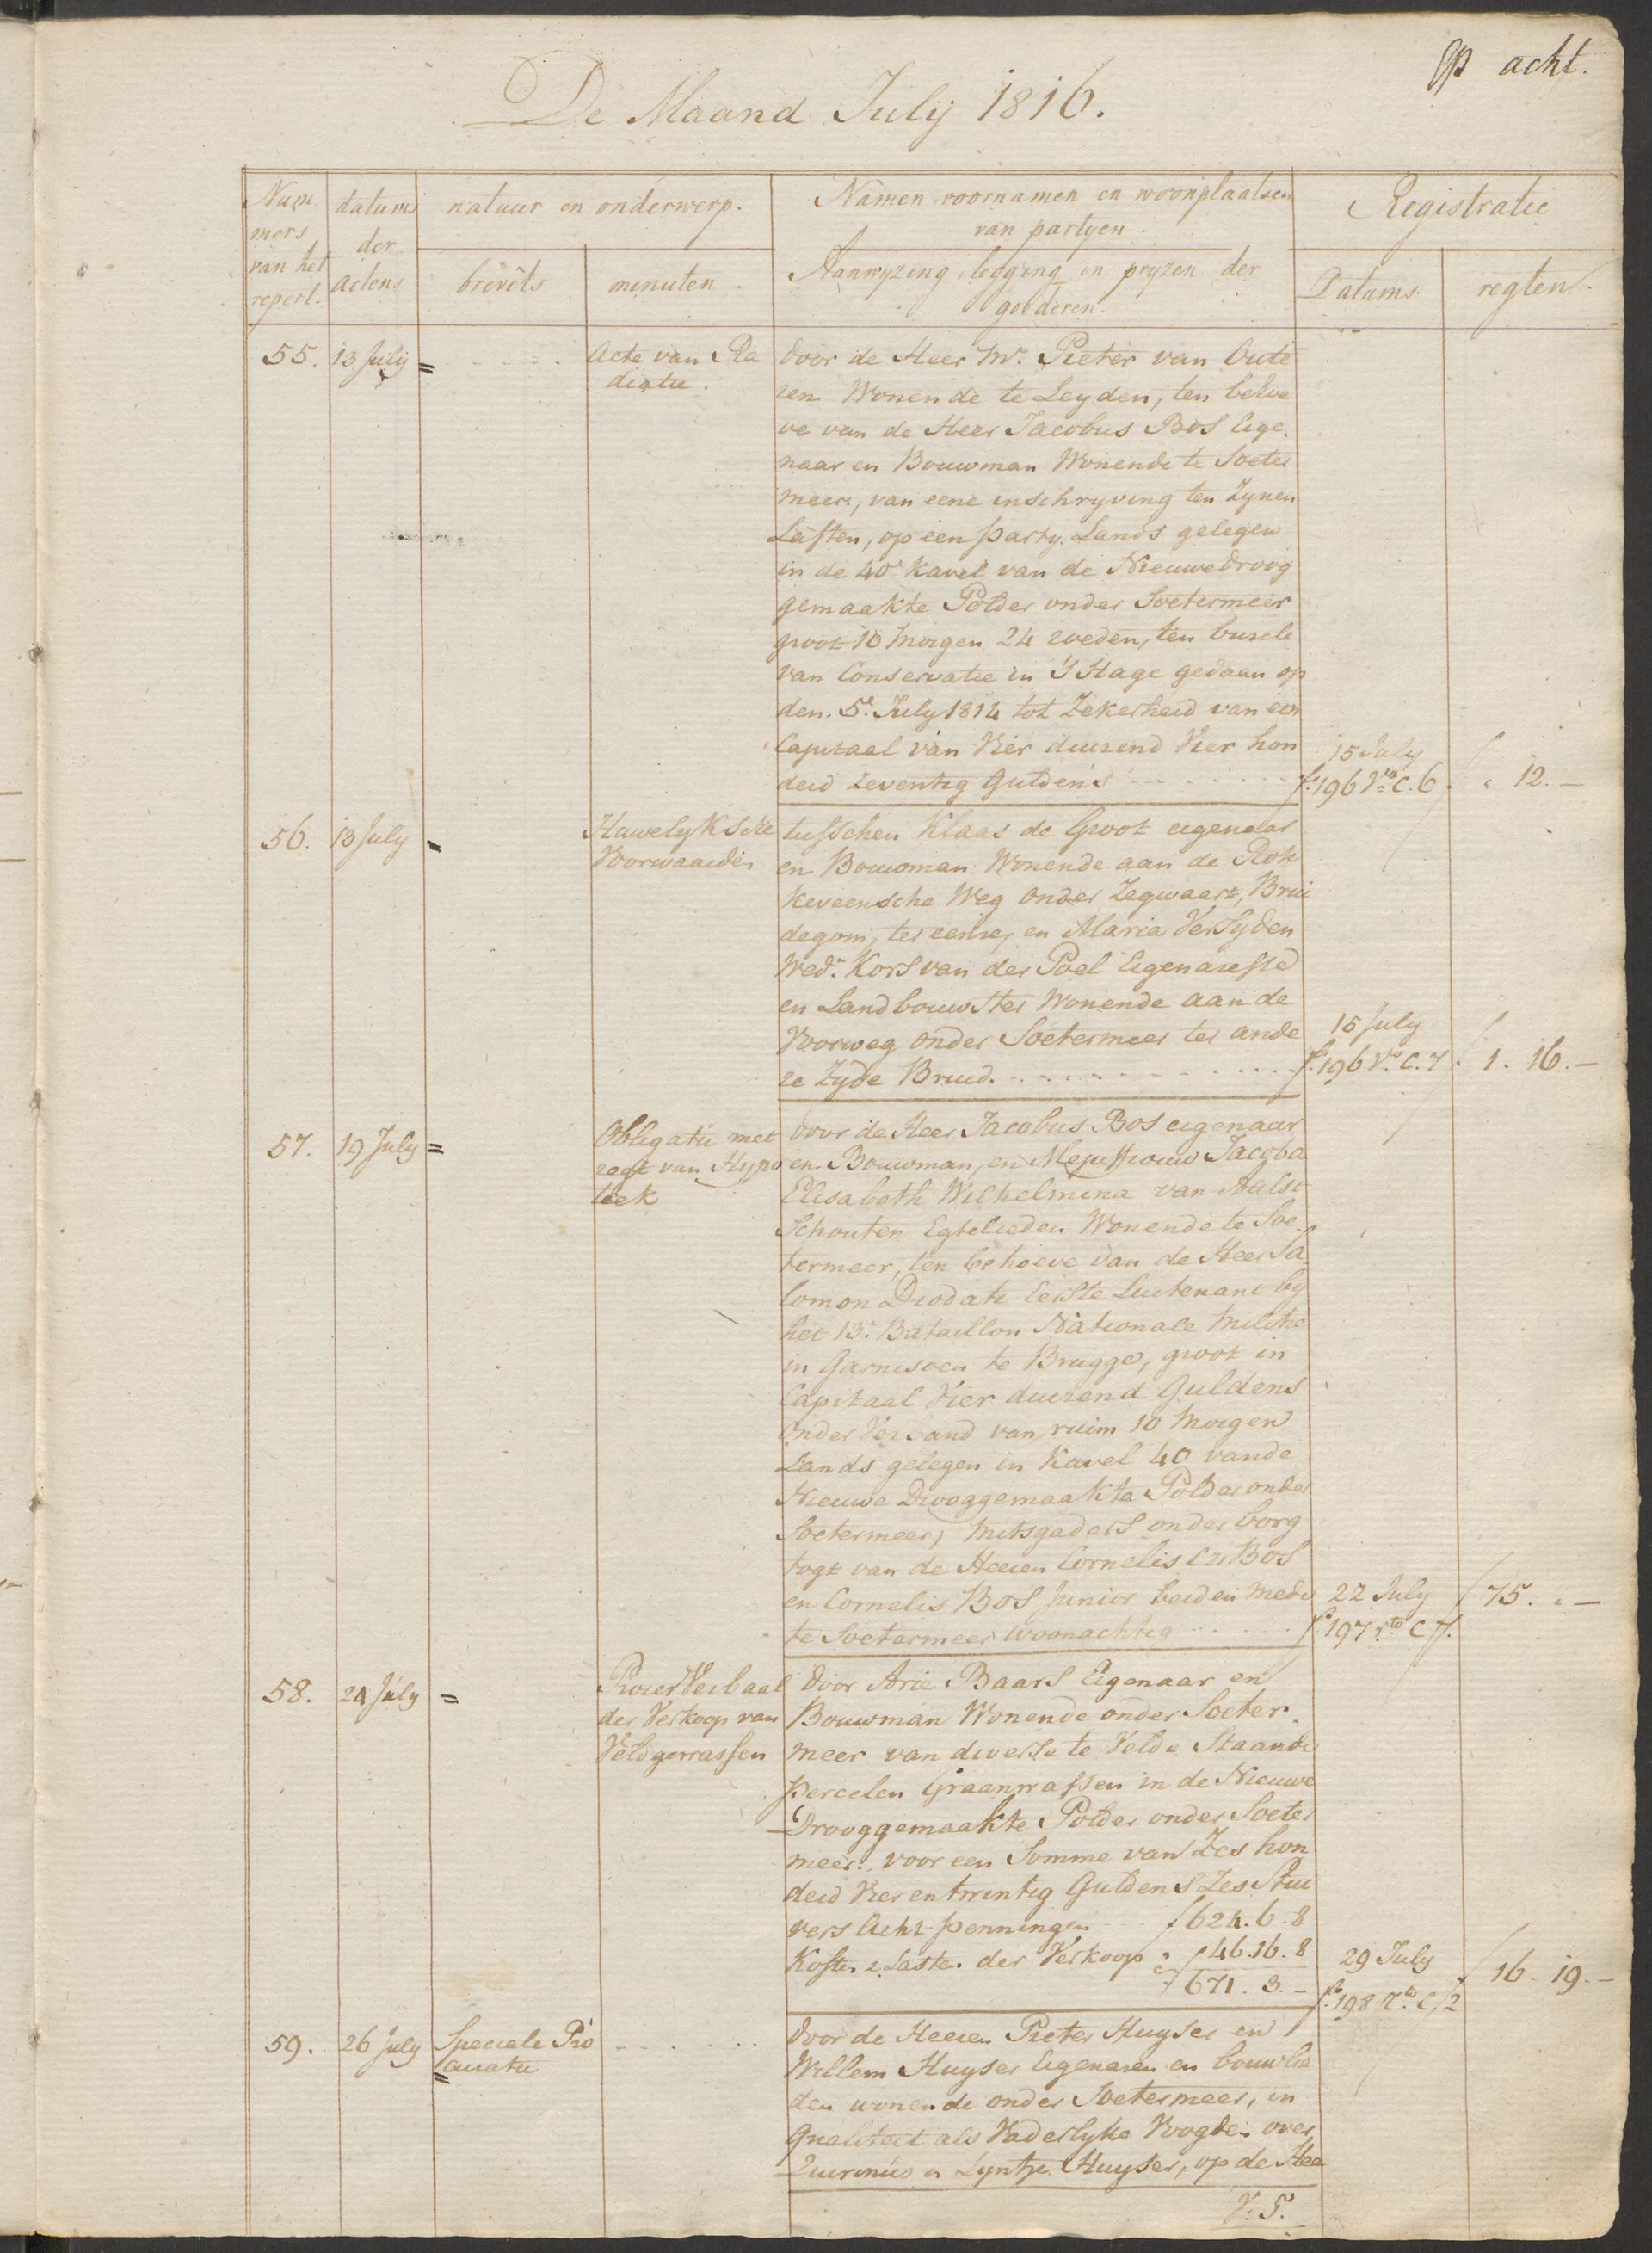 acht.
De Maand July 1816.
Num
mers
van het
repert.
datums
der
actens
natuur en onderwerp.
brevêts
minuten.
Namen voornamen en woonplaatsen
van partyen.
Aanwyzing, legging en pryzen der
goederen.
Registratie
Datums.
regten.
55. 13 July =
Acte van Ra
diatie.
door de Heer Mr. Pieter van Oute
ren Wonende te Leyden, ten behoe
ve van de Heer Jacobus Bos Eige
naar en Bouwman Wonende te Soeter
meer, van eene inschryving ten Zynen
Lasten, op een party Lands gelegen
in de 40e Kavel van de Nieuwe droog
gemaakte Polder onder Soetermeer
groot 10 Morgen 24 roeden, ten burele
van Conservatie in 's Hage gedaan op
den 5e July 1814 tot Zekerheid van een
Capitaal van Vier duizend Vier hon
derd zeventig Guldens
15 July
fo. 196 Vo C. 6.
f " 12. -
56. 13 July =
Huwelyksche
Voorwaarden
tusschen Klaas de Groot eigenaar
en Bouwman Wonende aan de Rok
keveensche Weg onder Zegwaart, Brui
degom, ter eenre, en Maria Versyden
Wede. Kors van der Poel Eigenaresse
en Landbouwster Wonende aan de
Voorweg onder Soetermeer ter ande
re Zyde Bruid.
15 July
fo. 196 Vo. C. 7.
f 1. 16. -
57. 19 July =
Obligatie met
regt van Hypo
teek
door de Heer Jacobus Bos eigenaar
en Bouwman, en Mejuffrouw Jacoba
Elisabeth Wilhelmina van Aalst
Schouten Egtelieden Wonende te Soe
termeer, ten behoeve van de Heer Sa
lomon Diodati Eerste Luitenant by
het 13e. Bataillon Nationale Militie
in Garnisoen te Brugge, groot in
Capitaal Vier duizend Guldens
onder Verband van ruim 10 Morgen
Lands gelegen in Kavel 40 vande
Nieuwe Drooggemaakte Polder onder
Soetermeer, mitsgaders onder borg
togt van de Heeren Cornelis Czn Bos
en Cornelis Bos Junior beiden mede
te Soetermeer Woonachtig
22 July
fo. 197 rto C 7.
f 75. " -
58. 24 July =
Proces Verbaal
der Verkoop van
Veldgewassen
door Arie Baars Eigenaar en
Bouwman Wonende onder Soeter
meer van diverse te Velde Staande
percelen Graanwassen in de Nieuwe
Drooggemaakte Polder onder Soeter
meer, voor een Somme van Zes hon
derd Vier en twintig Guldens Zes Stui
vers Acht penningen f 624. 6. 8
Kosten & Lasten der Verkoop " f 46. 16. 8
f 671. 3. -
29 July
fo. 198 Rto. C/2
f 16. 19. -
59. 26 July
Speciale Pro
curatie
door de Heeren Pieter Huyser en
Willem Huyser Eigenaren en bouwlie
den wonende onder Soetermeer, in
Qualiteit als Vaderlyke Voogden over
Quirinus en Lyntje Huyser, op de Hee
V. T.